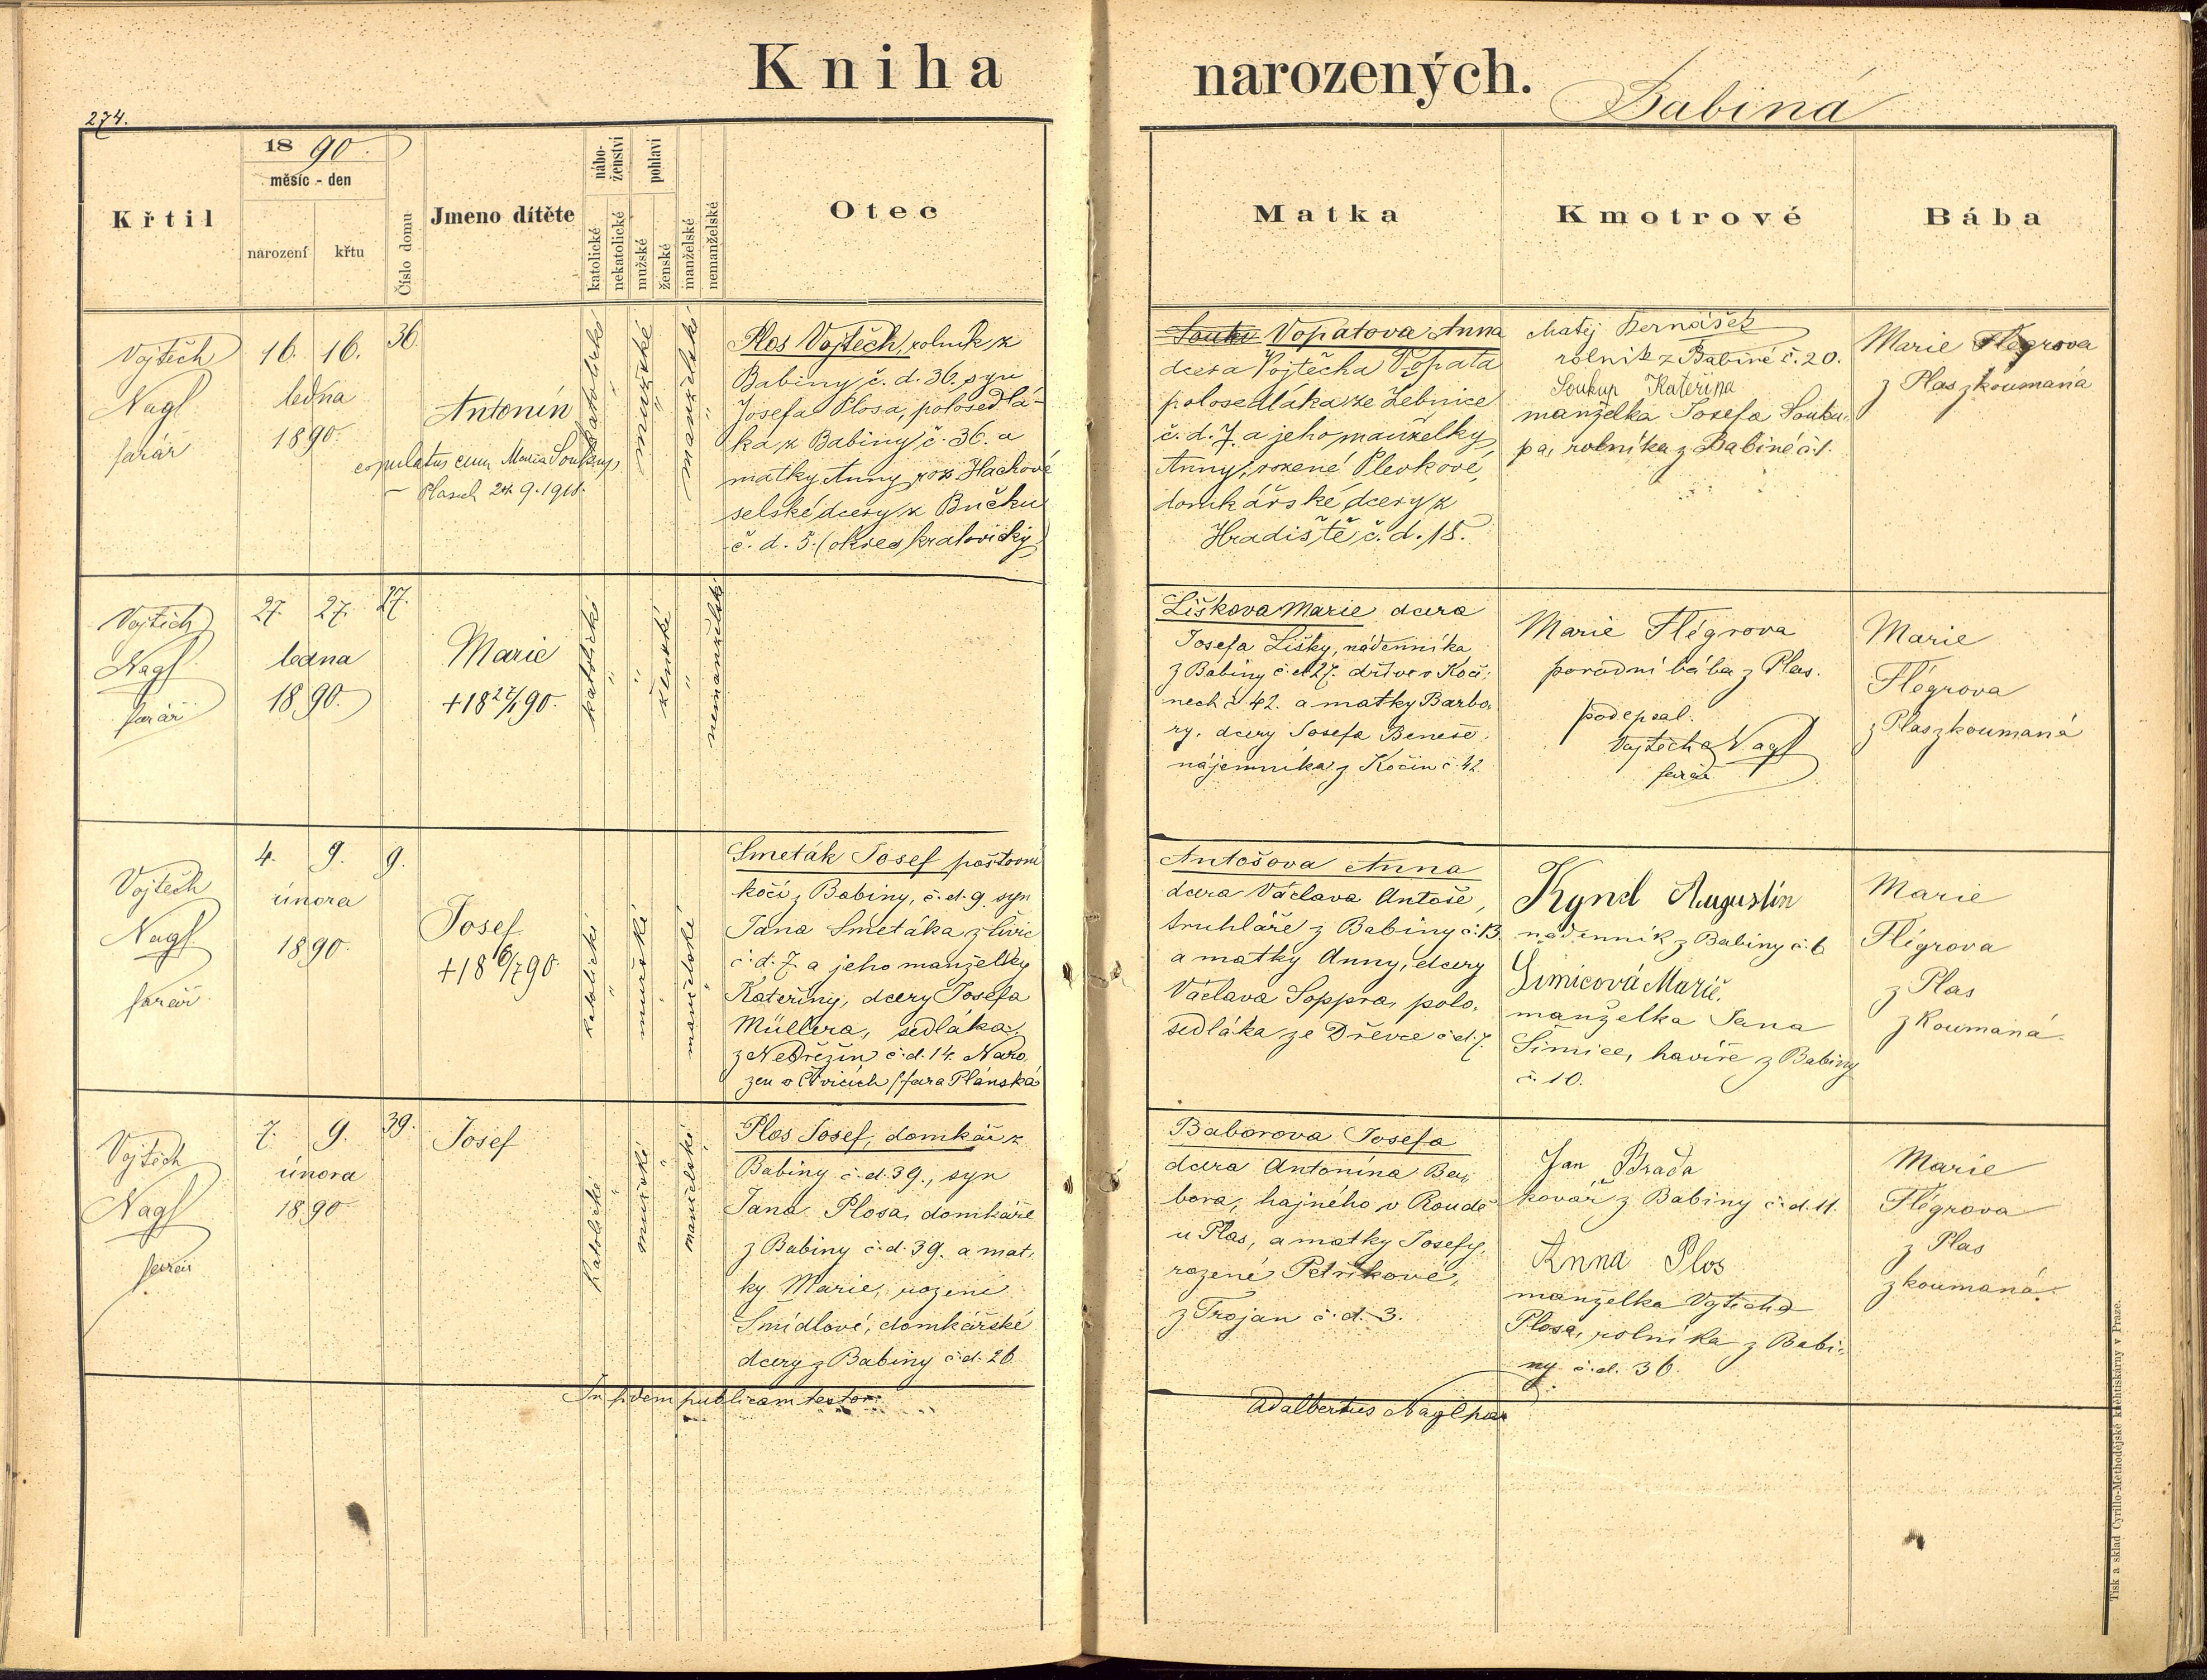 Kniha narozených.
Babina
274.
Křtil
18 90.
měsíc - den
narození
křtu
Číslo domu
Jmeno dítěte
nábo-
ženství
katolické
nekatolické
pohlaví
mužské
ženské
manželské
nemanželské
Otec
Matka
Kmotrové
Bába
Vojtěch
Nagl
farář
16. 16.
ledna
1890.
36.
Antonín
copulatus cum Maria Soukup
24. 9. 1918.
katolické
mužské
manželské
Plos Vojtěch, rolník z
Babiny č. d. 36. syn
Josefa Plosa, polosedlá-
ka z Babiny č. 36. a
matky Anny roz. Hachové
selské dcery z Bučku
č. d. 5. (okres kralovický)
Vopatova Anna
dcera Vojtěcha Vopata
polosedláka ze Žebnice
č. d. 7. a jeho manželky
Anny, rozené Plevkové,
domkářské dcery z
Hradiště č. d. 18.
Matěj Bernášek
rolník z Babiné č. 20.
Soukup Kateřina
manželka Josefa Souku-
pa, rolníka z Babiné č. 1.
Marie Flégrova
z Plas zkoumaná
Vojtěch
Nagl
farář
27. 27.
ledna
1890.
27.
Marie
+18 27/1 90.
katolické
"
"
ženské
"
nemanželské
Liškova Marie dcera
Josefa Lišky, nádenníka
z Babiny č. d. 27. dříve v Koči-
nech č. 42. a matky Barbo-
ry, dcery Josefa Beneše,
nájemníka z Kočin č. 42
Marie Flégrova
porodní bába z Plas.
podepsal.
Vojtěch Nagl
farář
Marie
Flégrova
z Plas zkoumaná
Vojtěch
Nagl
farář
4. 9.
února
1890.
9.
Josef
katolické
"
mužské
"
manželské
Smeták Josef poštovní
kočí z Babiny, č. d. 9. syn
Jana Smetáka z Livic
č. d. 7. a jeho manželky
Kateřiny, dcery Josefa
Müllera, sedláka
z Nebřežin č. d. 14. Naro
zen v (fara Plánská
Antošova Anna
dcera Václava Antoše,
truhláře z Babiny č. 13.
a matky Anny, dcery
Václava Soppra, polo-
sedláka ze Dřevce č. d. 7.
Kynd Augustin
nádenník z Babiny č. 6
Šimicová Marie.
manželka Jana
Šimice, havíře z Babiny
č. 10.
Marie
Flégrova
z Plas
zkoumaná.
Vojtěch
Nagl
farář
7. 9.
února
1890
39.
Josef
katolické
"
mužské
"
manželské
Plos Josef, domkář z
Babiny č. d. 39., syn
Jana Plosa, domkáře
z Babiny č. d. 39. a mat-
ky Marie, rozené
Šmídlové, domkářské
dcery z Babiny č. d. 26
Baborova Josefa
dcera Antonína Ba-
bora, hajného v Roudé
u Plas, a matky Josefy,
rozené Petříkové,
z Trojan č. d. 3.
Jan Brada
kovář z Babiny č. d. 11.
Anna Plos
manželka Vojtěcha
Plosa, rolníka z Babi-
ny č. d. 36.
Marie
Flégrova
z Plas
zkoumaná.
In fidem publicam testor:
Adalbertus Nagl par
Tisk a sklad Cyrillo-Methodějské knihtiskárny v Praze.